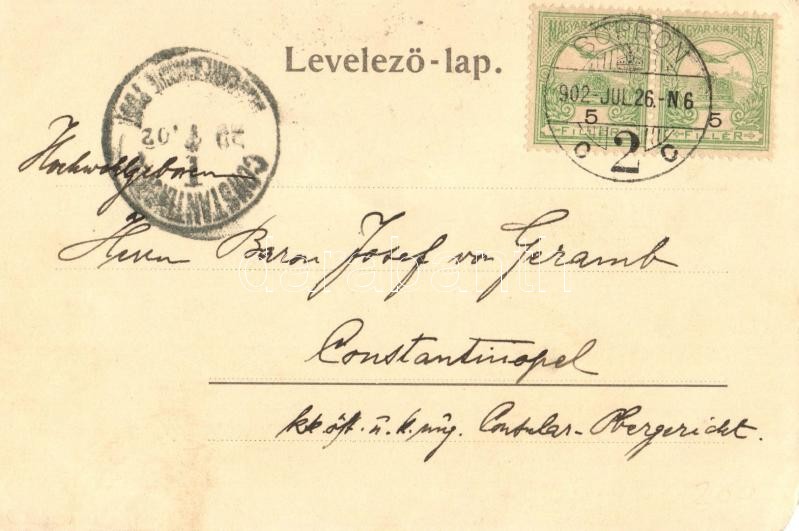 Levelező-lap.
MAGYAR KIR. POSTA
MAGYAR KIR. POSTA
5 5
FILLÉR
FILLÉR
SOPRON
902-JUL.26.-N6
2
29 7 02
Hochwohlgeboren
Herrn Baron Josef von Geramb
darabanth
Constantinopel
kk öst. u. k. ung. Consular-Obergericht.